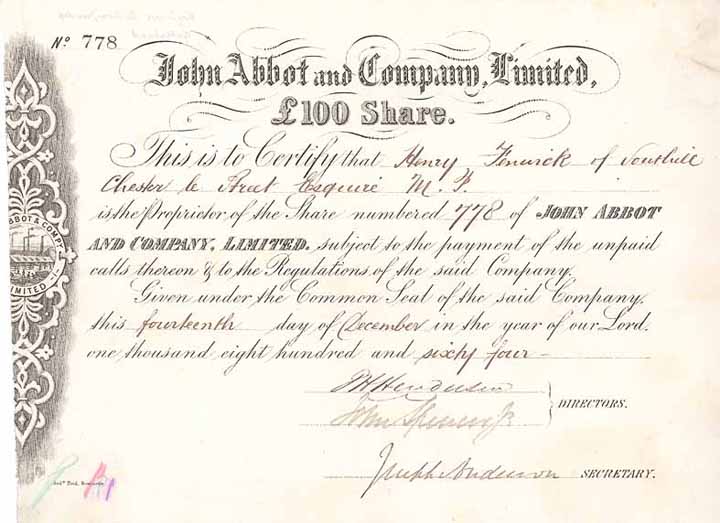 No. 778
John Abbot and Company, Limited,
£100 Share.
This is to Certify that Henry Fenwick of Southill
Chester le Street Esquire M. P.
is the Proprietor of the Share numbered 778 of JOHN ABBOT
AND COMPANY, LIMITED. subject to the payment of the unpaid
calls thereon & to the Regulations of the said Company.
Given under the Common Seal of the said Company,
this fourteenth day of December in the year of our Lord,
one thousand eight hundred and sixty four
ABBOT & COMPY
LIMITED
P H Henderson
John Spencer Jr
DIRECTORS.
Joseph Anderson SECRETARY.